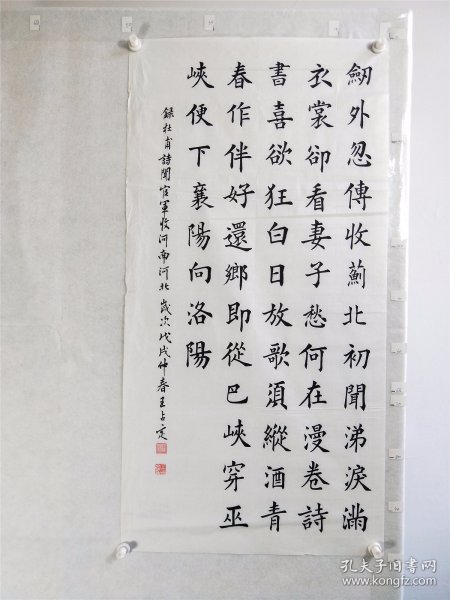 劒外忽傳收薊北初聞涕淚滿
衣裳卻看妻子愁何在漫卷詩
書喜欲狂白日放歌須縱酒青
春作伴好還鄉即從巴峽穿巫
峽便下襄陽向洛陽
錄杜甫詩聞官軍收河南河北 歲次戊戌仲春王占定
孔夫子旧书网
www.kongfz.com